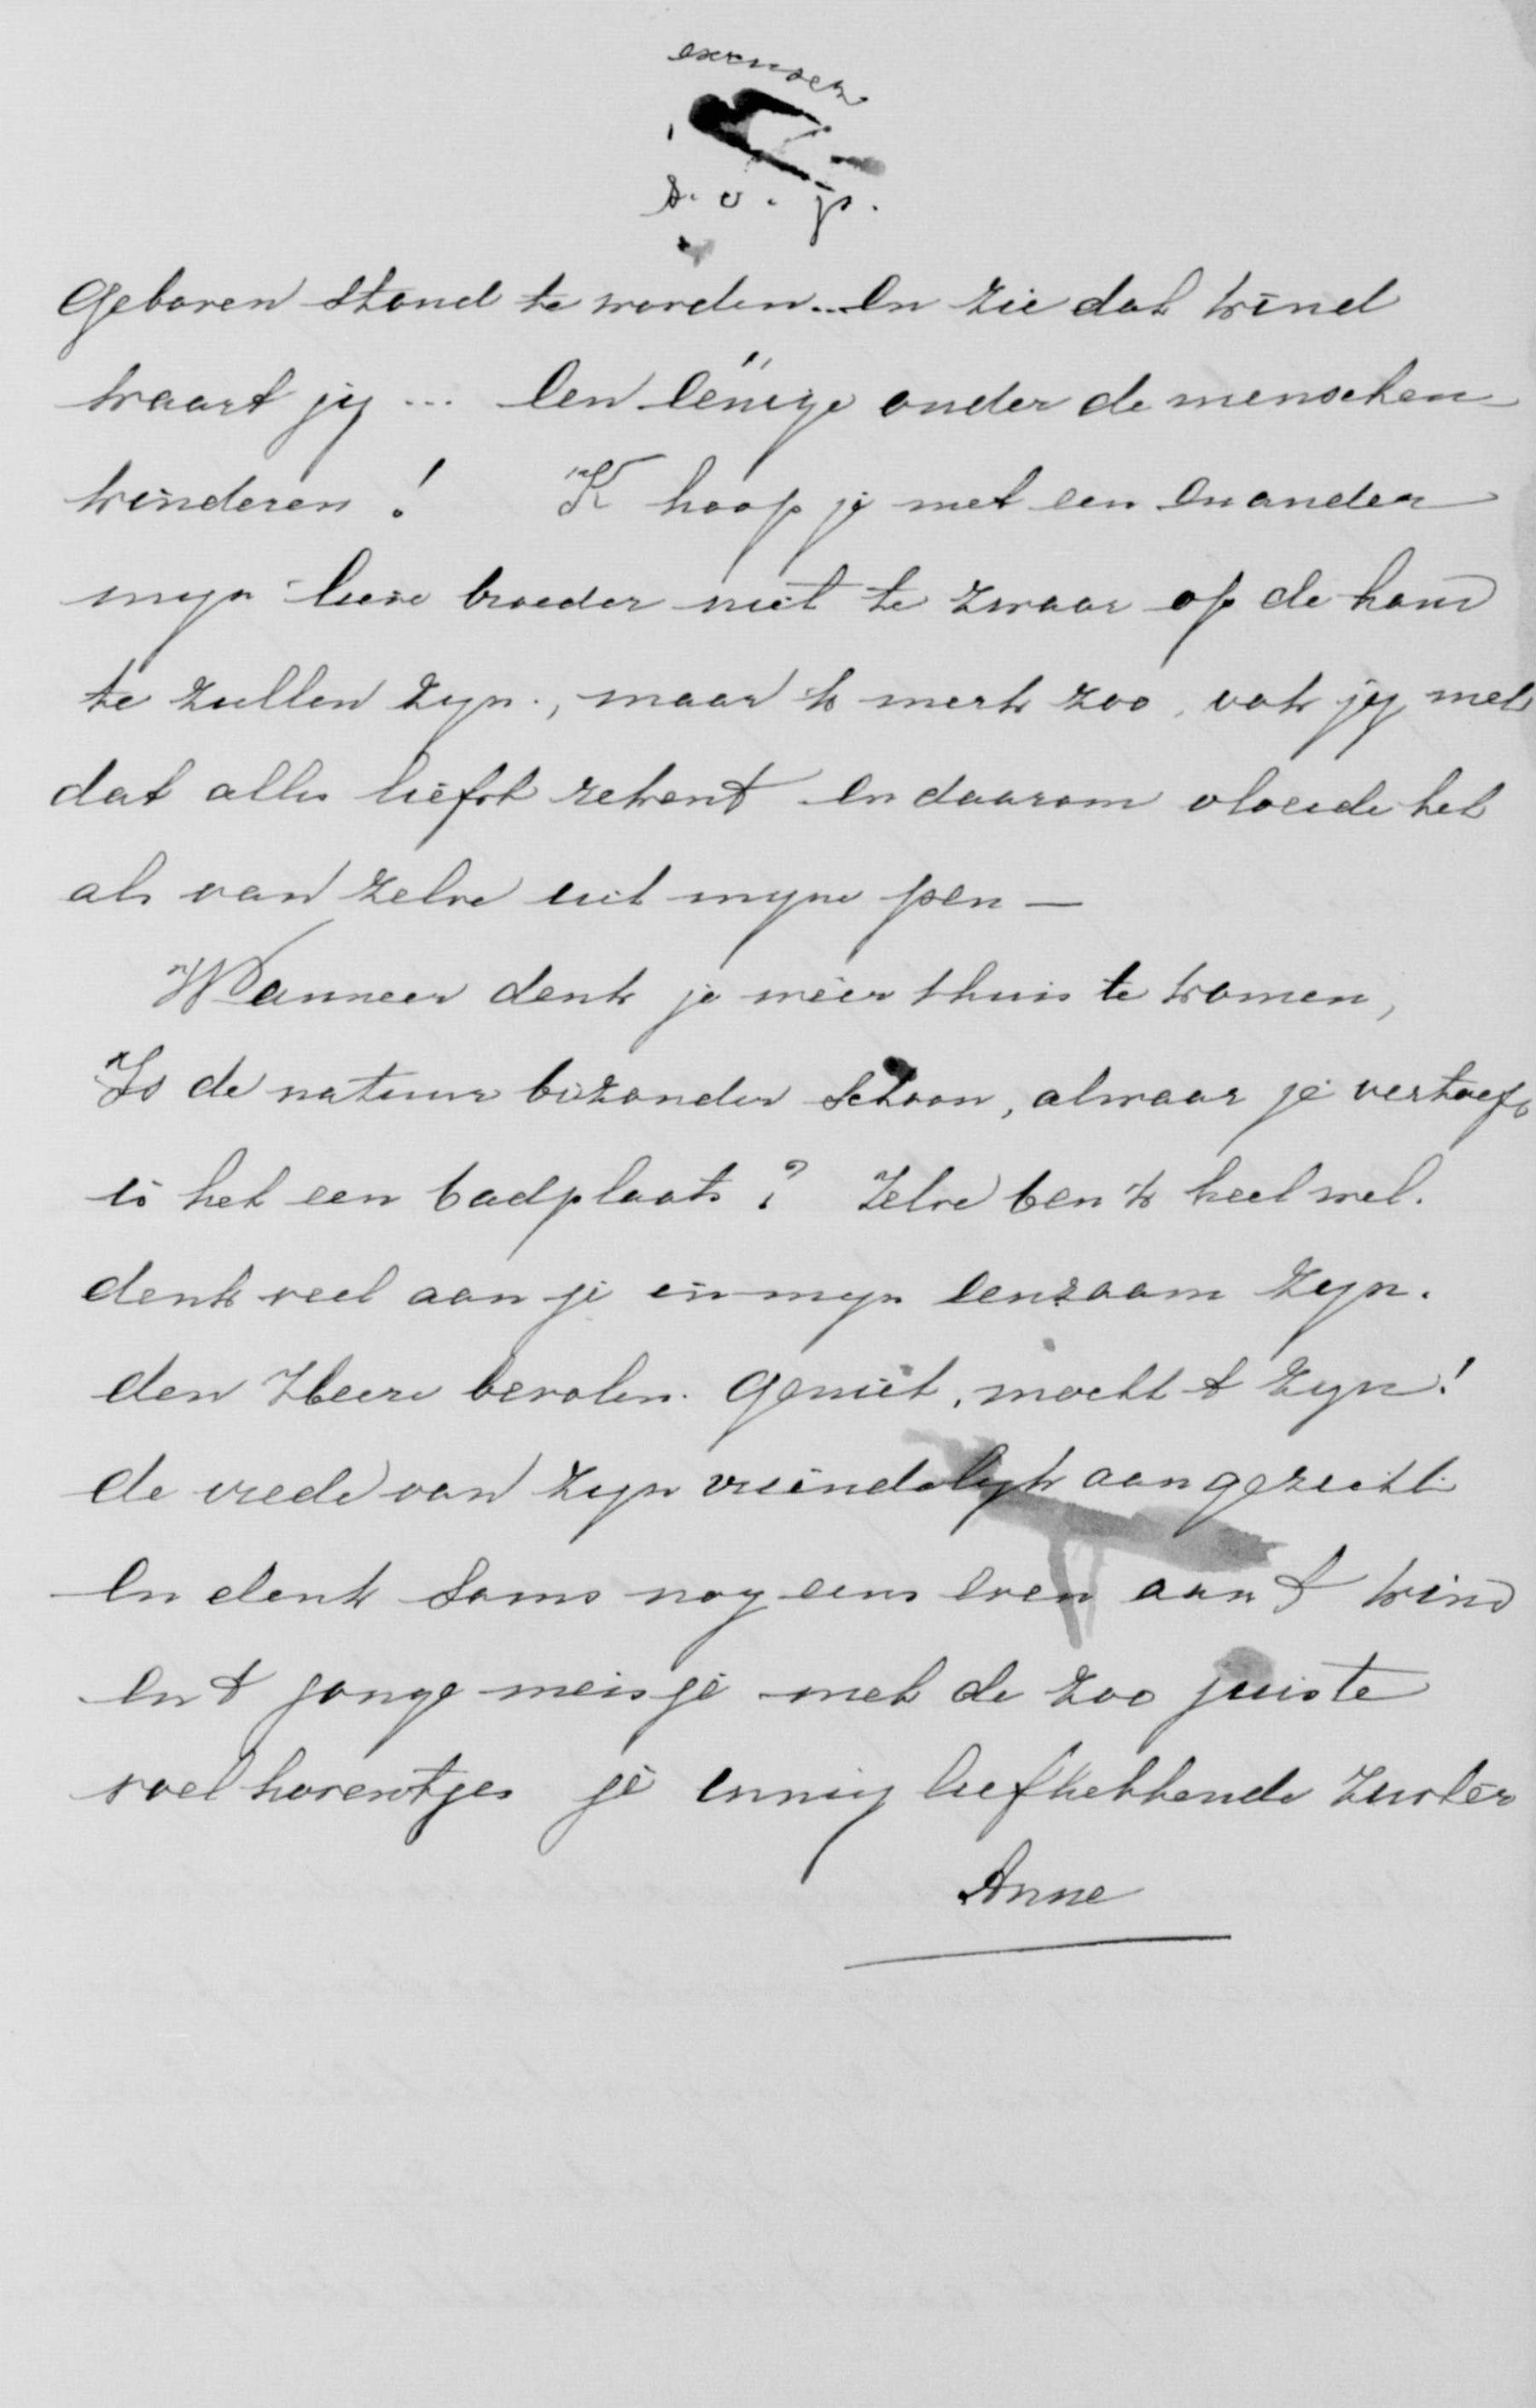 excuseer
s. v. p.
Geboren stond te worden... En zie dat kind
waart jij ... Een Eenige onder de menschen
kinderen! 'K hoop je met een en ander
mijn lieve broeder niet te zwaar op de hand
te zullen zijn., maar 'k merk zoo, ook jij met
dat alles liefst rekent en daarom vloeide het
als van zelve uit mijne pen —
Wanneer denk je weer thuis te komen,
Is de natuur bizonder Schoon, alwaar je vertoeft
is het een badplaats? Zelve ben 'k heel wel.
denk veel aan je in mijn eenzaam zijn.
den Heere bevolen. Geniet, mocht 't zijn!
de vrede van zijn vriendelijk aangezicht
En denk Soms nog eens even aan 't kind
En 't jonge meisje met de zoo juiste
voelhorentjes je innig liefhebbende zuster
Anne